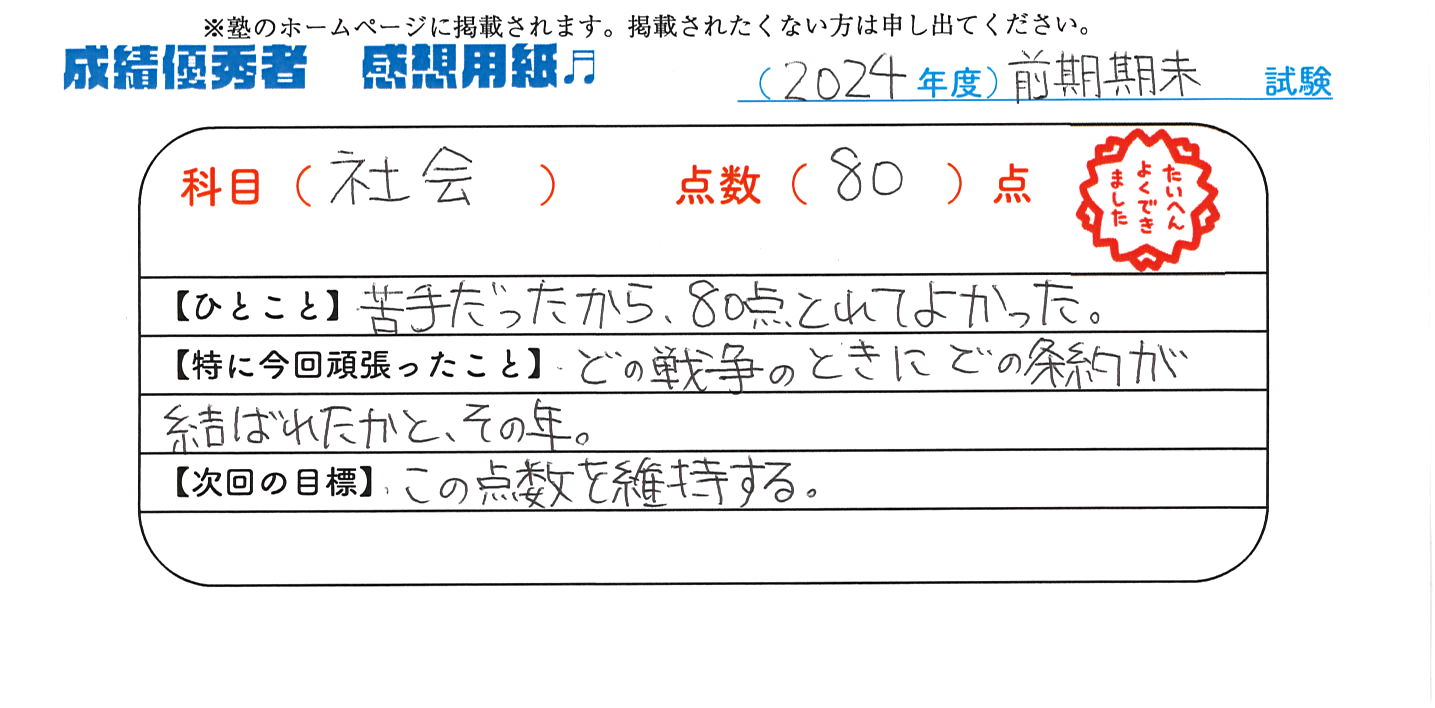 ※塾のホームページに掲載されます。掲載されたくない方は申し出てください。
成績優秀者 感想用紙♬
（2024年度）前期期末 試験
科目（社会）点数（80）点
たいへん
よくでき
ました
【ひとこと】苦手だったから、80点とれてよかった。
【特に今回頑張ったこと】どの戦争のときにどの条約が
結ばれたかと、その年。
【次回の目標】この点数を維持する。